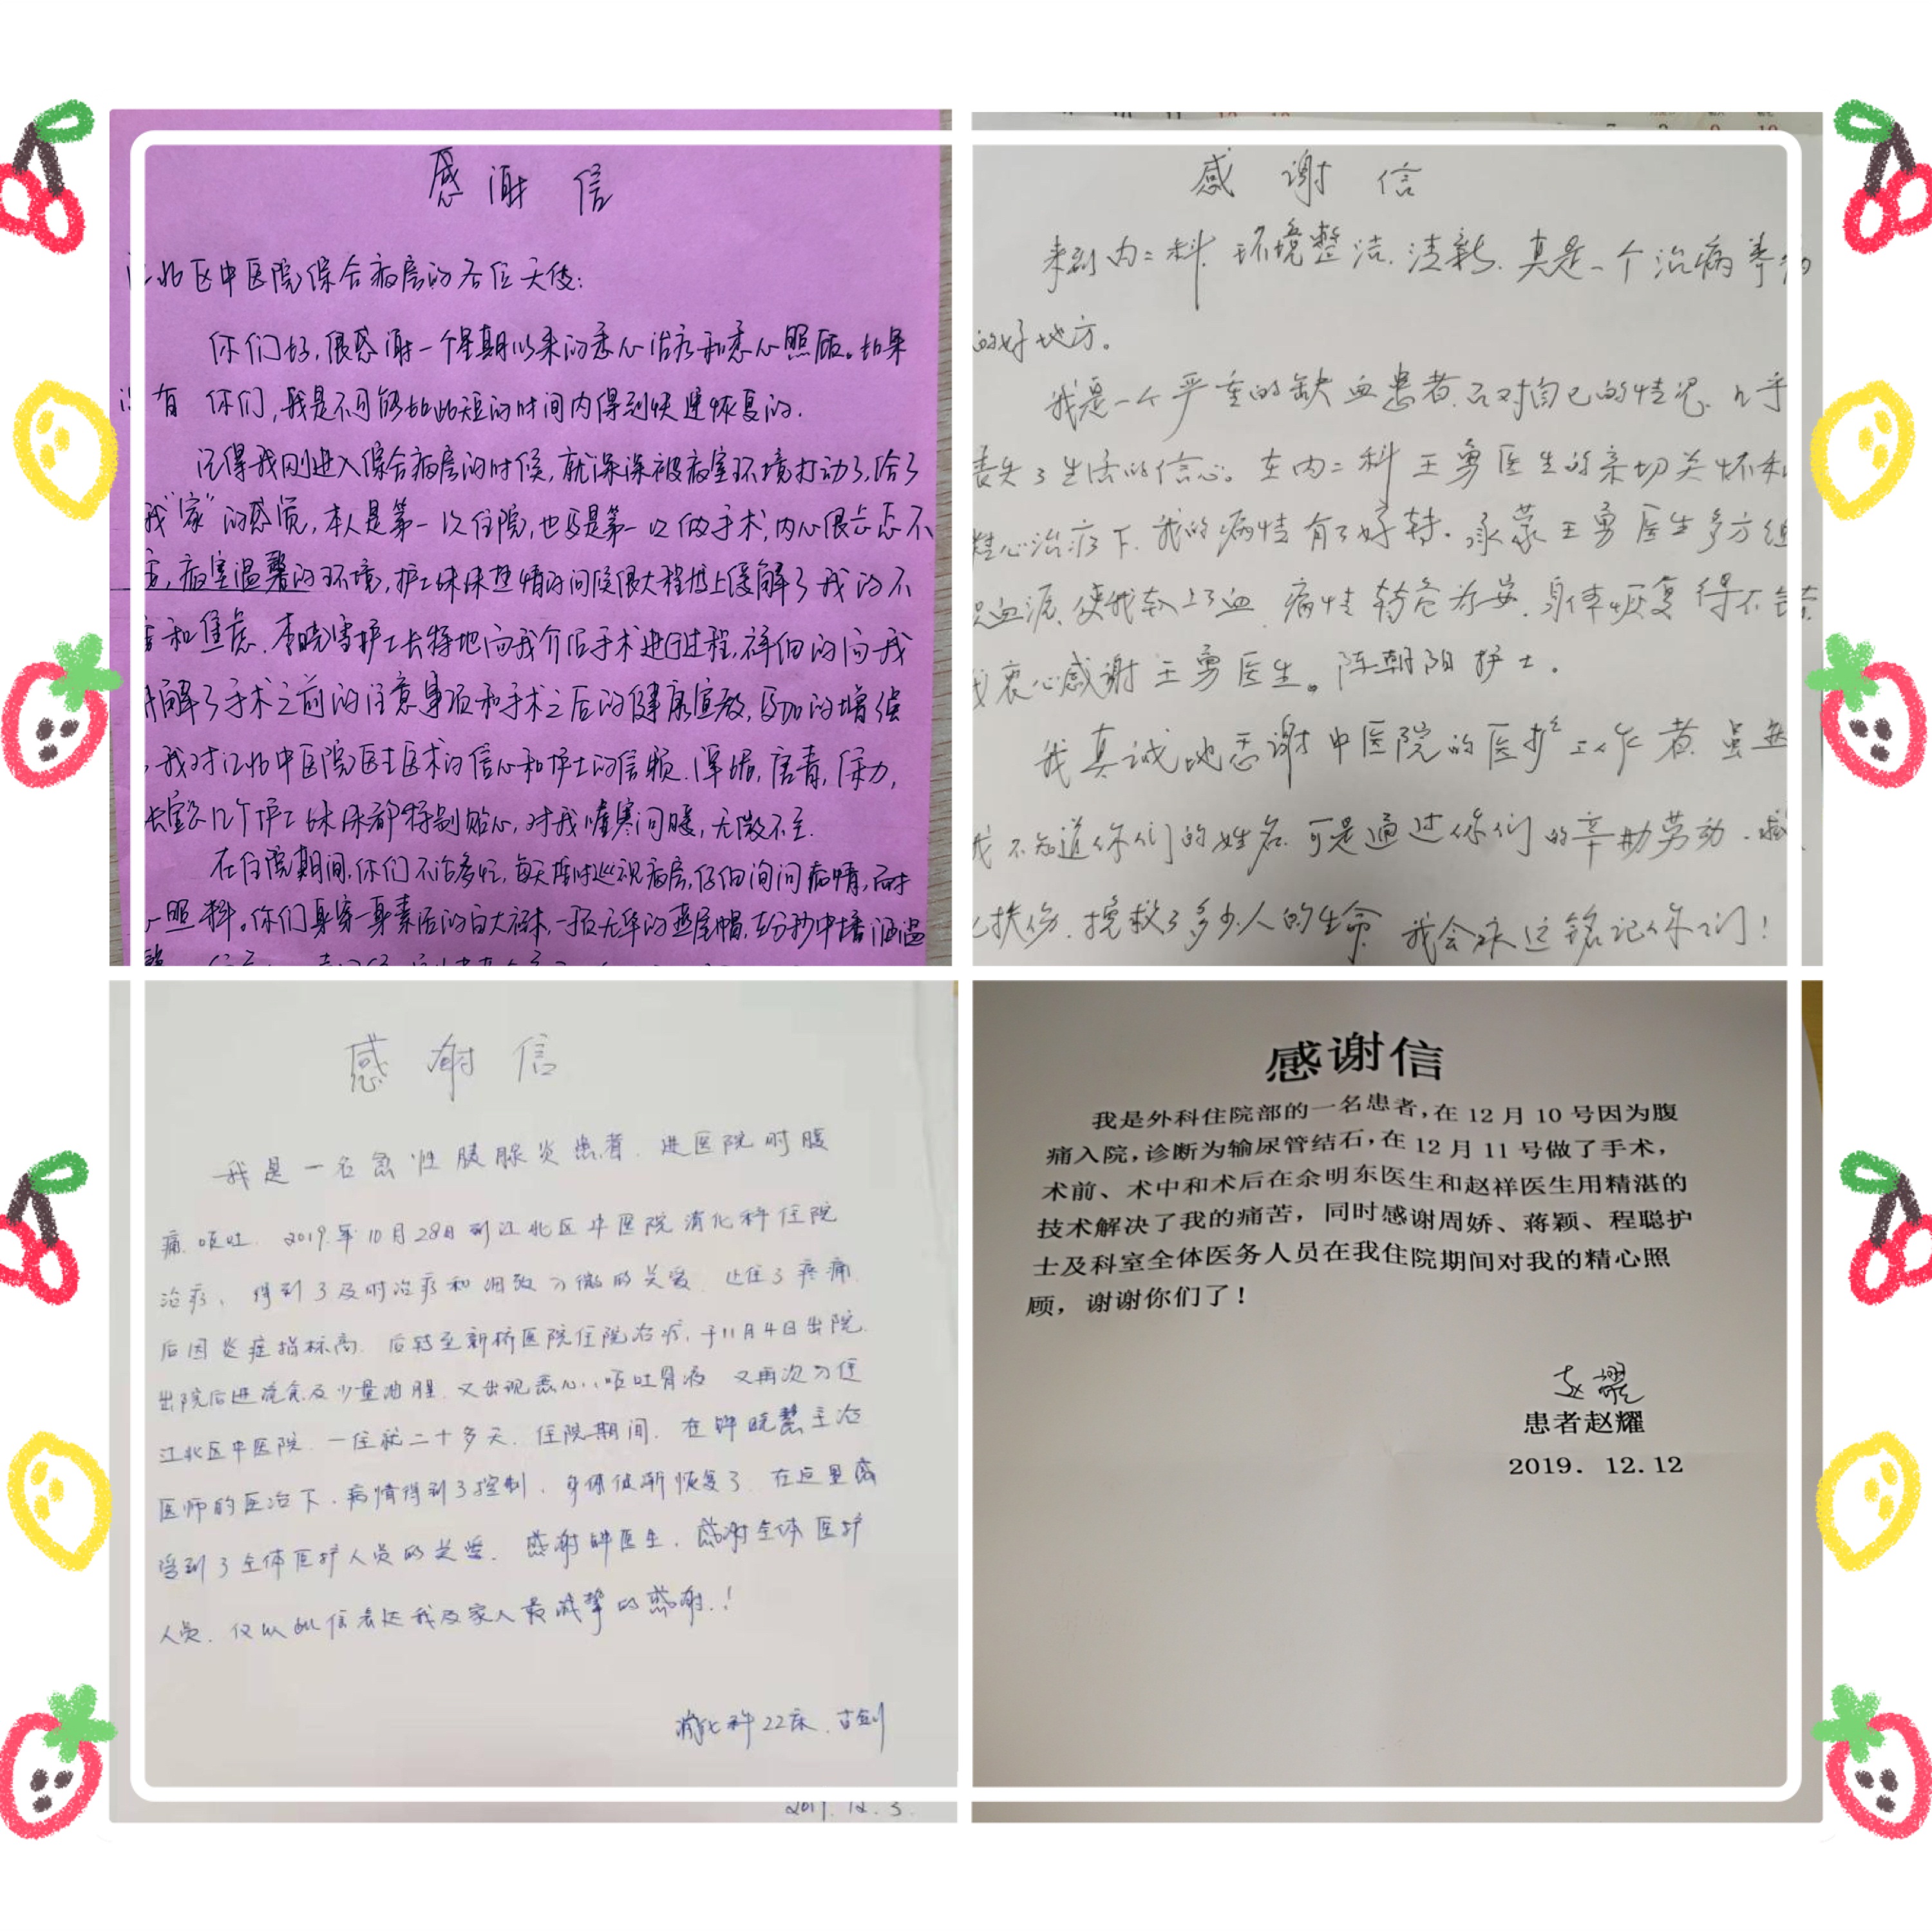 感谢信
北区中医院综合病房的各位天使:
你们好,很感谢一个星期以来的悉心治疗和悉心照顾。如果
有 你们,我是不可能如此短的时间内得到快速恢复的.
记得我刚进入综合病房的时候,就深深被病室环境打动了,给了
我"家"的感觉,本人是第一次住院,也是第一次做手术,内心很忐忑不
病室温馨的环境,护士妹妹热情的问候很大程度上缓解了我的不
和焦虑.李晓雪护士长特地向我介绍手术进行过程,详细的向我
讲解了手术之前的注意事项和手术之后的健康宣教,的增强
我对江北中医院医生医术的信心和护士的信赖.唐青,
几个护士妹妹都特别贴心,对我嘘寒问暖,无微不至.
在住院期间,你们不论多忙,每天按时巡视病房,仔细询问病情,耐
照料。你们身穿一身素洁的白大褂,一顶无华的燕尾帽,在分秒中播洒温
感谢信
来到内二科.环境整洁.清新.真是一个治病养病
的好地方。
我是一个严重的缺血患者.面对自己的情况.几乎
丧失了生活的信心。在内二科王勇医生的亲切关怀和
精心治疗下.我的病情有了好转.承蒙王勇医生多方组
织血源.使我输上了血.病情转危为安.身体恢复得不错
我衷心感谢王勇医生。陈朝阳护士。
我真诚地感谢中医院的医护工作者.虽然
我不知道你们的姓名.可是通过你们的辛勤劳动.救
扶伤.挽救了多少人的生命.我会永远铭记你们!
感谢信
我是一名急性胰腺炎患者.进医院时腹
痛.呕吐.2019年10月28日到江北区中医院消化科住院
治疗、得到了及时治疗和细致入微的关爱.止住了疼痛.
后因炎症指标高.后转至新桥医院住院治疗,于11月4日出院.
出院后进流食及少量油腥.又出现恶心、呕吐胃液 又再次入住
江北区中医院.一住就二十多天.住院期间.在钟晓慧主治
医师的医治下.病情得到了控制.身体逐渐恢复了.在这里感
受到了全体医护人员的关爱.感谢钟医生.感谢全体医护
人员.仅以此信表达我及家人最诚挚的感谢.!
消化科22床.古剑
2019.12.3.
感谢信
我是外科住院部的一名患者,在12月10号因为腹
痛入院,诊断为输尿管结石,在12月11号做了手术,
术前、术中和术后在余明东医生和赵祥医生用精湛的
技术解决了我的痛苦,同时感谢周娇、蒋颖、程聪护
士及科室全体医务人员在我住院期间对我的精心照
顾,谢谢你们了!
赵耀
患者赵耀
2019. 12.12